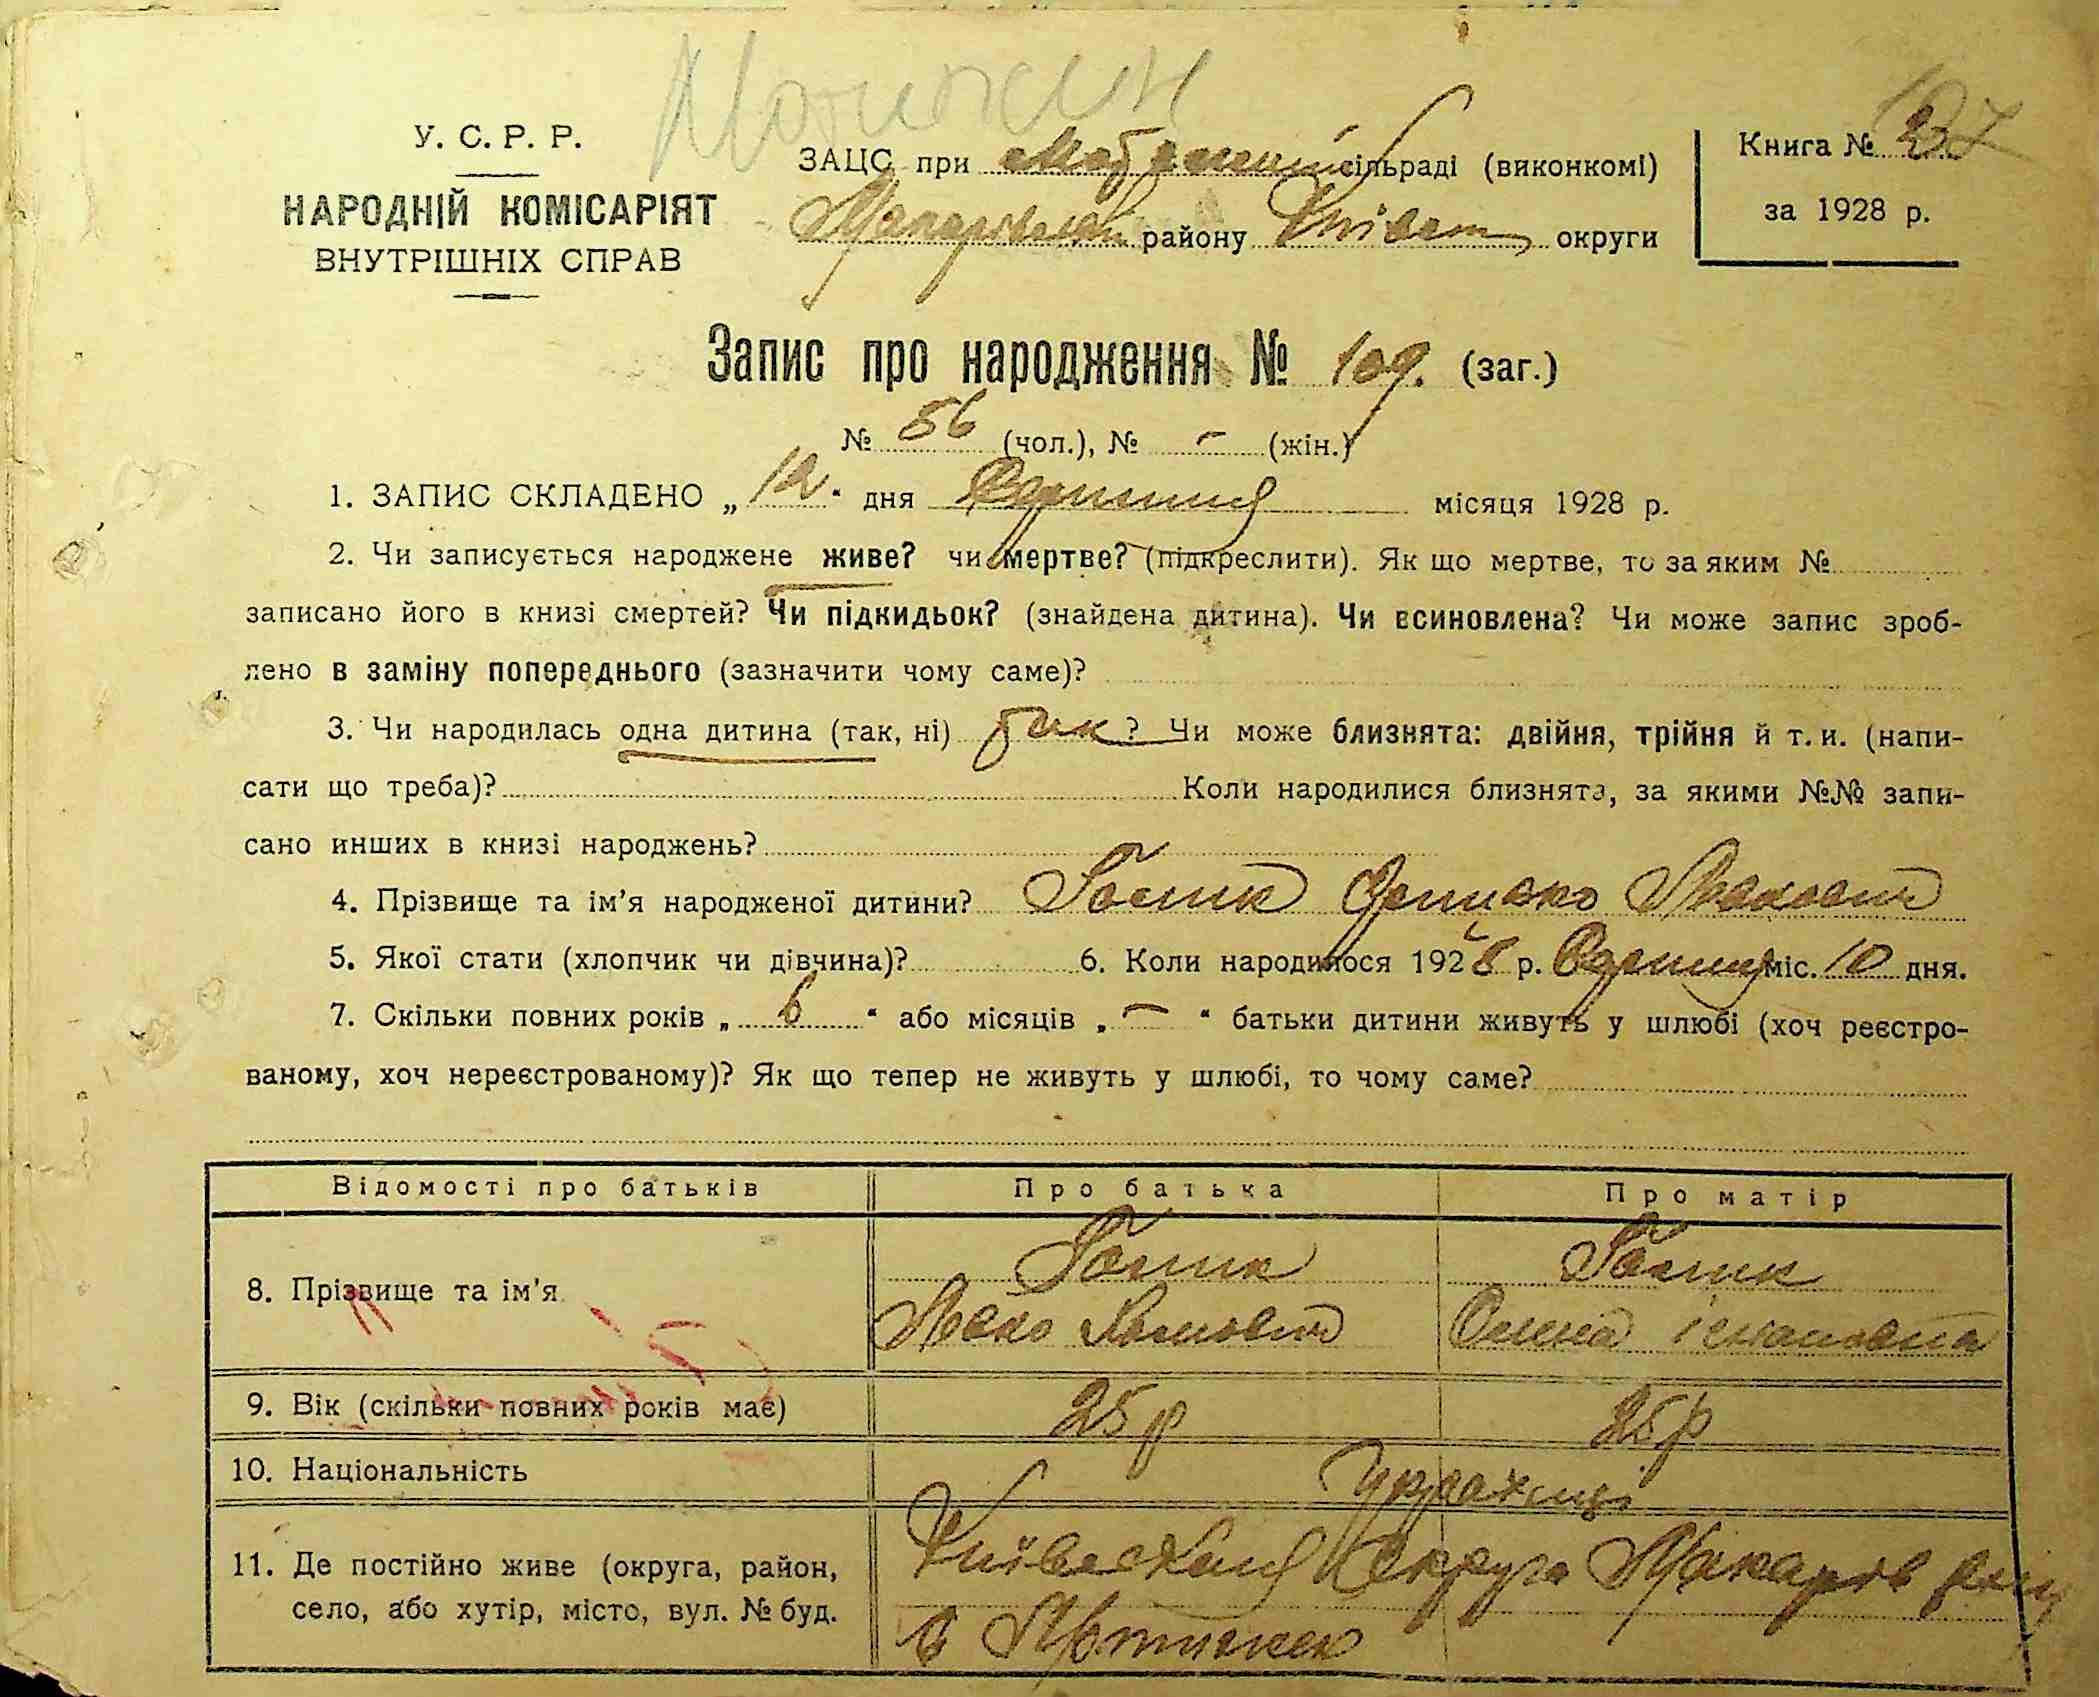 Мотижин
У. С. Р. Р.
НАРОДНІЙ КОМІСАРІЯТ
ВНУТРІШНІХ СПРАВ
ЗАЦС при сільраді (виконкомі)
Макарівськ району Київськ округи
Книга №
за 1928 р.
Запис про народження № 109. (заг.)
№ 56 (чол.), № – (жін.)
1. ЗАПИС СКЛАДЕНО „12“ дня Серпня місяця 1928 р.
2. Чи записується народжене живе? чи мертве? (підкреслити). Як що мертве, то за яким №
записано його в книзі смертей? Чи підкидьок? (знайдена дитина). Чи всиновлена? Чи може запис зроб-
лено в заміну попереднього (зазначити чому саме)?
3. Чи народилась одна дитина (так, ні) так ? Чи може близнята: двійня, трійня й т. и. (напи-
сати що треба)? Коли народилися близнята, за якими №№ запи-
сано инших в книзі народжень?
4. Прізвище та ім'я народженої дитини?
5. Якої стати (хлопчик чи дівчина)? 6. Коли народилося 1928 р. Серпня міс. 10 дня.
7. Скільки повних років „ 6 “ або місяців „ – “ батьки дитини живуть у шлюбі (хоч реєстро-
ваному, хоч нереєстрованому)? Як що тепер не живуть у шлюбі, то чому саме?
Відомості про батьків Про батька Про матір
8. Прізвище та ім'я
9. Вік (скільки повних років має) 25 р 25 р
10. Національність Українці
11. Де постійно живе (округа, район,
село, або хутір, місто, вул. № буд.
Київська Округа Макарів
с Мотижен